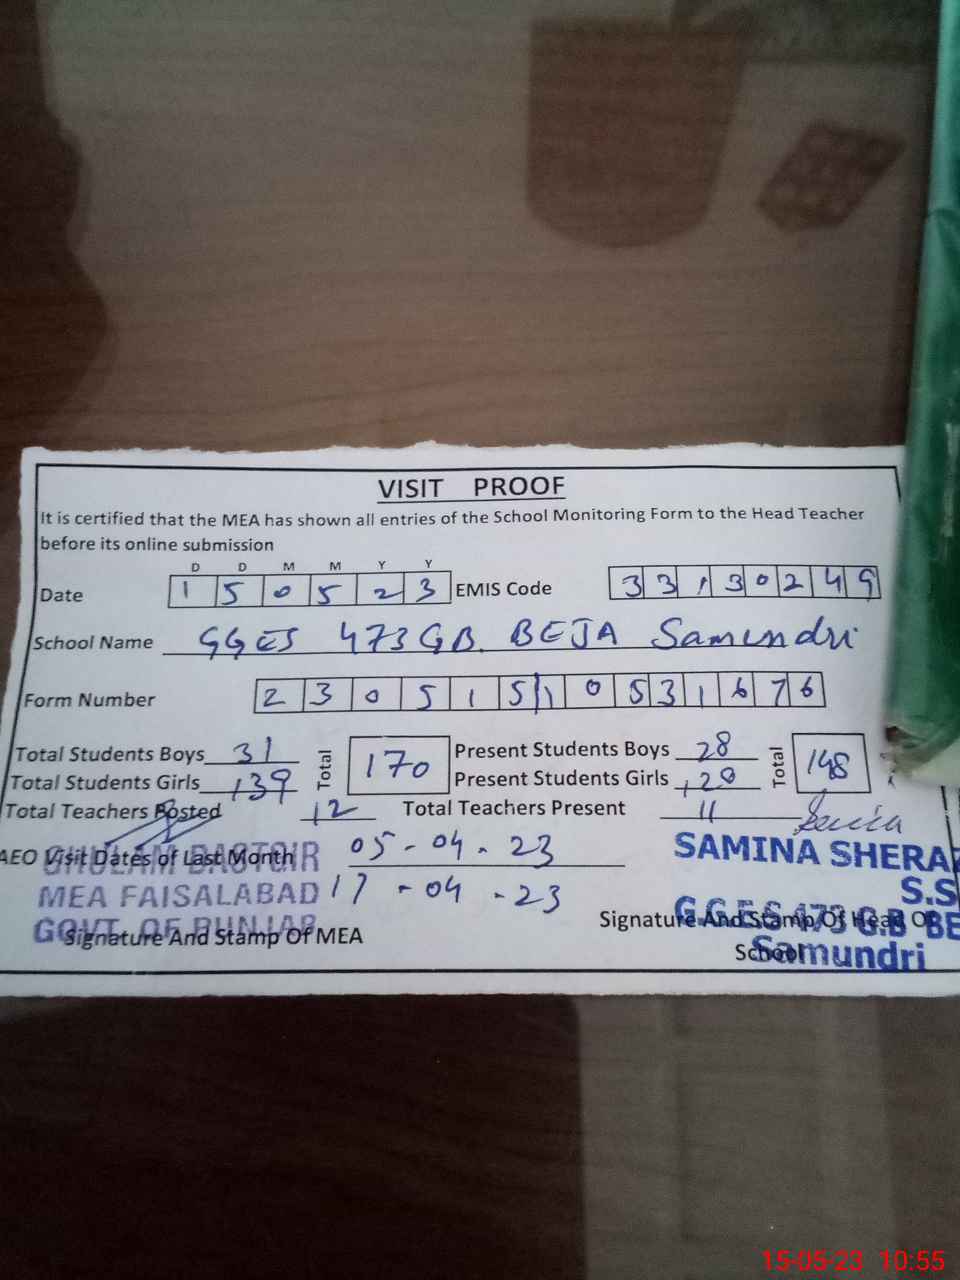 VISIT PROOF
It is certified that the MEA has shown all entries of the School Monitoring Form to the Head Teacher
before its online submission
D D M M Y Y
Date 1 5 0 5 2 3 EMIS Code 3 3 1 3 0 2 4 9
School Name GGES 473 GB. BEJA Samundri
Form Number 2 3 0 5 1 5 1 0 5 3 1 6 7 6
Total Students Boys 31 Total 170 Present Students Boys 28 Total 148
Total Students Girls 139 Present Students Girls 120
Total Teachers Posted 12 Total Teachers Present 11
AEO Visit Dates of Last Month 05-04-23
17-04-23
GHULAM DASTGIR
MEA FAISALABAD
GOVT. OF PUNJAB
Signature And Stamp Of MEA
SAMINA SHERAZ
S.S
G.G.E.S 473 G.B BE
Samundri
Signature And Stamp Of Head Of
School
15-05-23 10:55